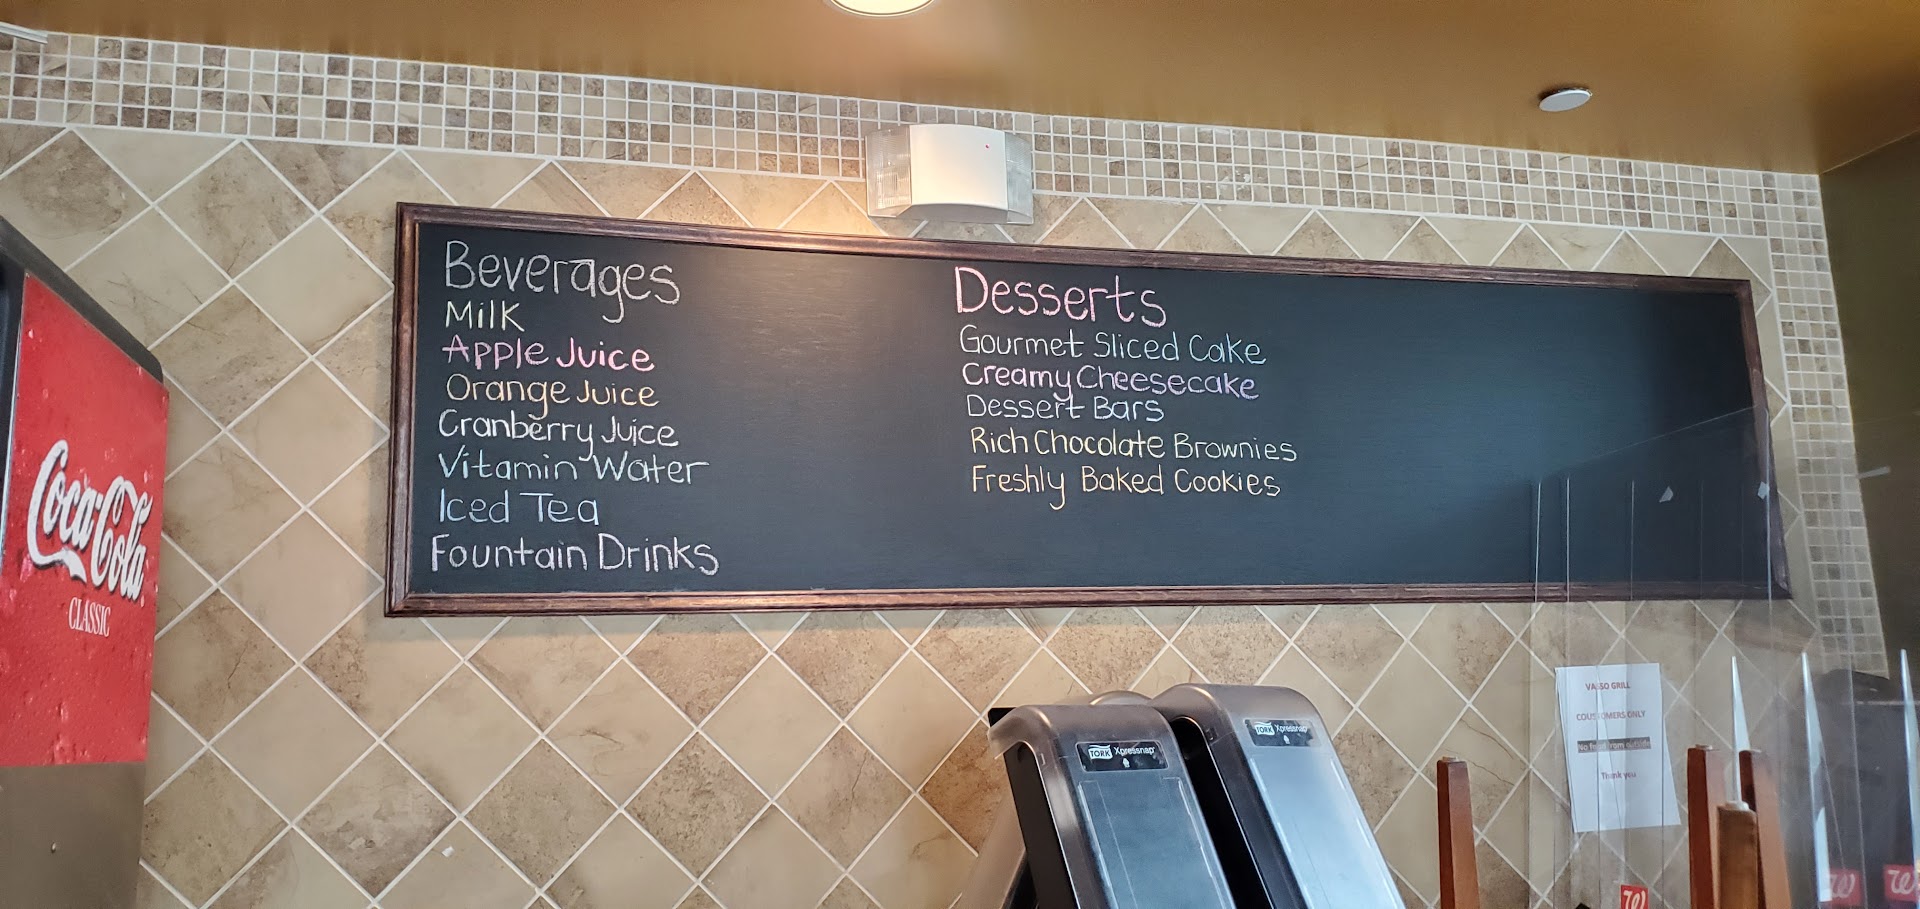 Beverages
Milk
Apple Juice
Orange Juice
Cranberry Juice
Vitamin Water
Iced Tea
Fountain Drinks
Desserts
Gourmet Sliced Cake
Creamy Cheesecake
Dessert Bars
Rich Chocolate Brownies
Freshly Baked Cookies
Coca-Cola
CLASSIC
TORK Xpressnap
TORK Xpressnap
GRILL
ONLY
No food from outside
Thank you
W
W
W